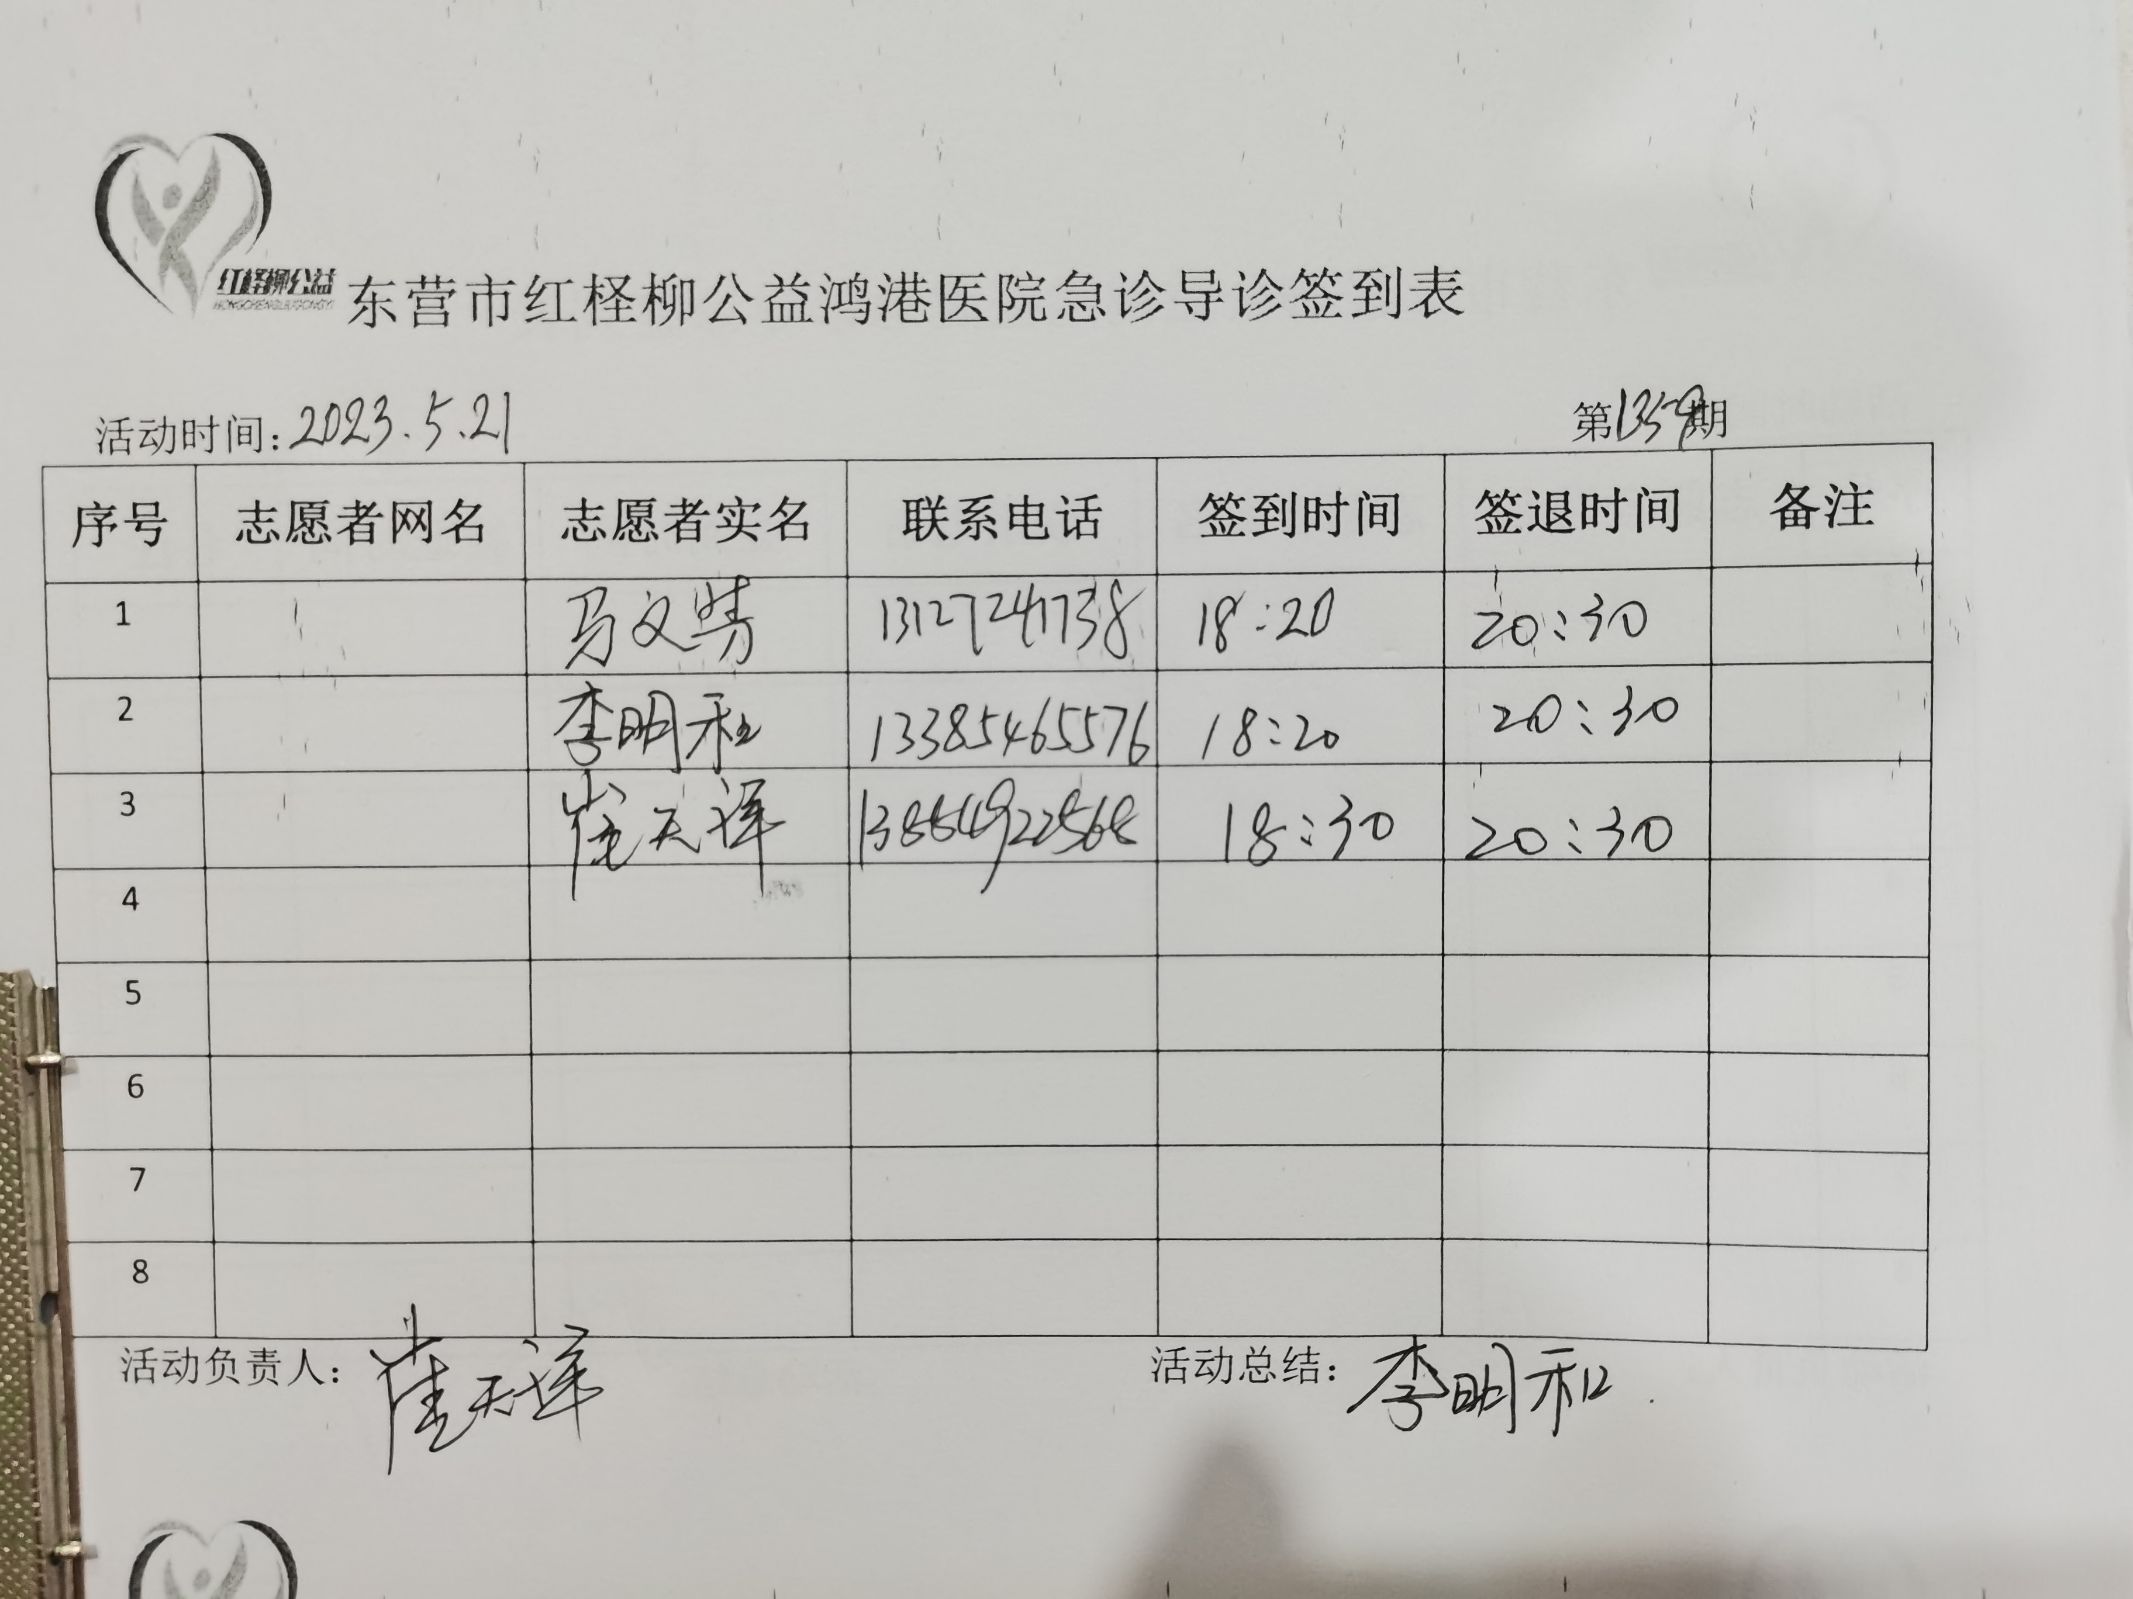 红柽柳公益
HONGCHENGLIUGONGYI
东营市红柽柳公益鸿港医院急诊导诊签到表
活动时间:2023.5.21 第1359期
序号 志愿者网名 志愿者实名 联系电话 签到时间 签退时间 备注
1 马文 13127241738 18:20 20:30
2 李明和 13385465576 18:20 20:30
3 崔天详 18:30 20:30
4
5
6
7
8
活动负责人: 崔天详 活动总结: 李明和.